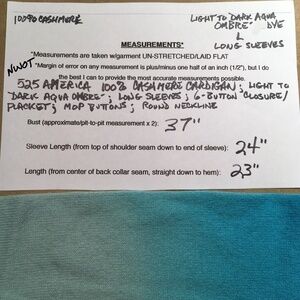 100% CASHMERE
LIGHT TO DARK AQUA
OMBRE' DYE
L
LONG SLEEVES
MEASUREMENTS*
*Measurements are taken w/garment UN-STRETCHED/LAID FLAT
NWOT
*Margin of error on any measurement is plus/minus one half of an inch (1/2"), but I do
the best I can to provide the most accurate measurements possible.
525 AMERICA 100% CASHMERE CARDIGAN; LIGHT TO
DARK AQUA OMBRE'; LONG SLEEVES; 6-BUTTON CLOSURE/
PLACKET; MOP BUTTONS; ROUND NECKLINE
Bust (approximate/pit-to-pit measurement x 2): 37"
Sleeve Length (from top of shoulder seam down to end of sleeve): 24"
Length (from center of back collar seam, straight down to hem): 23"